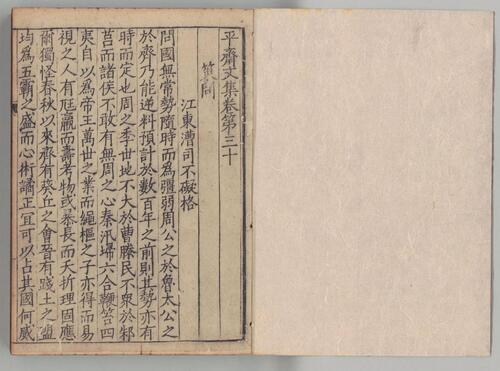 平齋文集卷第三十
策問
江東漕司不礙格
問國無常勢隨時而為彊弱周公之於魯太公之
於齊乃能逆料預計於數百年之前則其勢亦有
時而定也周之季世地不大於曹滕民不衆於邾
莒而諸侯不敢有無周之心秦汛埽六合鞭笞四
夷自以為帝王萬世之業而繩樞之子亦得而易
視之人有尫羸而壽考物或暴長而夭折理固應
爾獨怪春秋以來齊有葵丘之會晉有踐土之盟
均為五霸之盛而心術譎正宜可以占其國何威